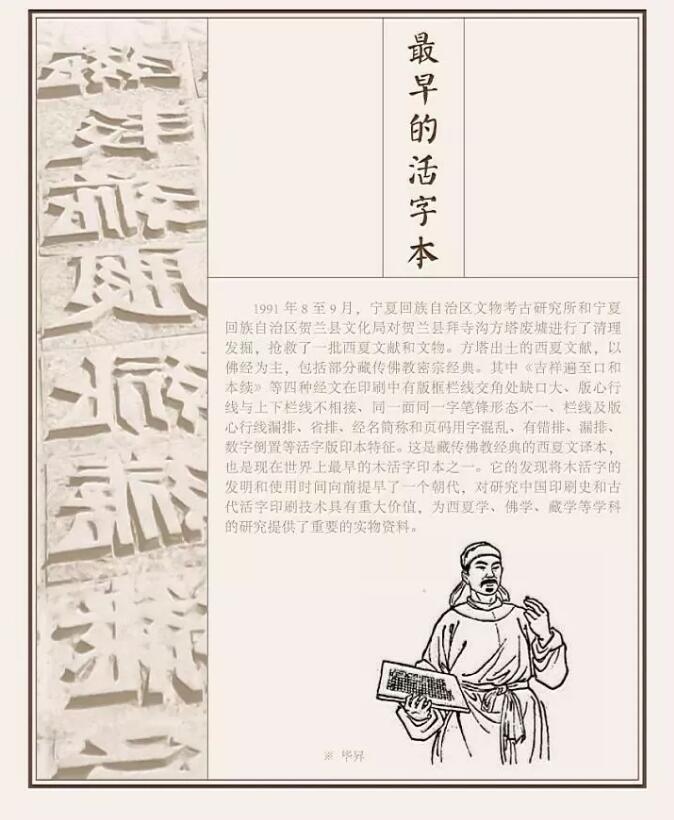 最早的活字本
1991 年 8 至 9 月，宁夏回族自治区文物考古研究所和宁夏
回族自治区贺兰县文化局对贺兰县拜寺沟方塔废墟进行了清理
发掘，抢救了一批西夏文献和文物。方塔出土的西夏文献，以
佛经为主，包括部分藏传佛教密宗经典。其中《吉祥遍至口和
本续》等四种经文在印刷中有版框栏线交角处缺口大、版心行
线与上下栏线不相接、同一面同一字笔锋形态不一、栏线及版
心行线漏排、省排、经名简称和页码用字混乱、有错排、漏排、
数字倒置等活字版印本特征。这是藏传佛教经典的西夏文译本，
也是现在世界上最早的木活字印本之一。它的发现将木活字的
发明和使用时间向前提早了一个朝代，对研究中国印刷史和古
代活字印刷技术具有重大价值，为西夏学、佛学、藏学等学科
的研究提供了重要的实物资料。
※ 毕昇